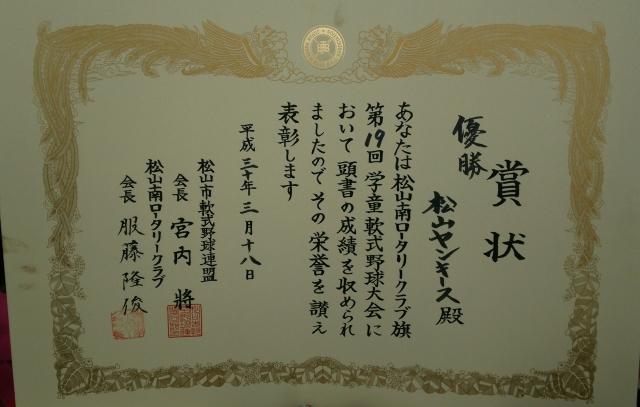 賞状
優勝
松山ヤンキース殿
あなたは松山南ロータリークラブ旗
第19回学童軟式野球大会に
おいて頭書の成績を収められ
ましたのでその栄誉を讃え
表彰します
平成三十年三月十八日
松山市軟式野球連盟
会長 宮内 將
松山南ロータリークラブ
会長 服藤 隆俊